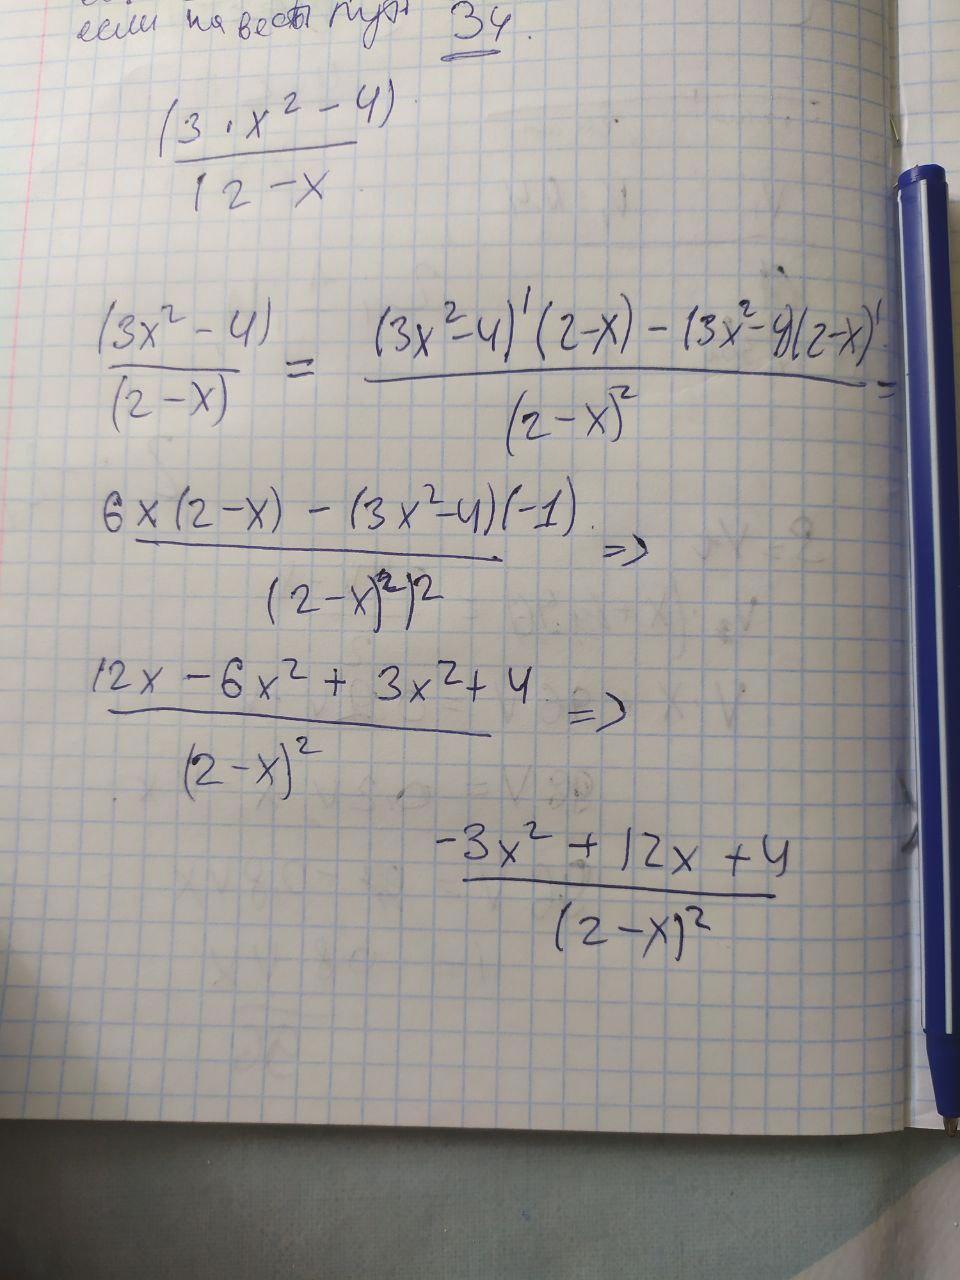 если на весь путь 34.
(3 · x² - 4)
(2 - x
(3x² - 4) / (2 - x) = ((3x² - 4)' (2 - x) - (3x² - 4)(2 - x)') / (2 - x)² =
6x (2 - x) - (3x² - 4)(-1) / (2 - x)²)2 =>
12x - 6x² + 3x² + 4 / (2 - x)² =>
-3x² + 12x + 4 / (2 - x)²